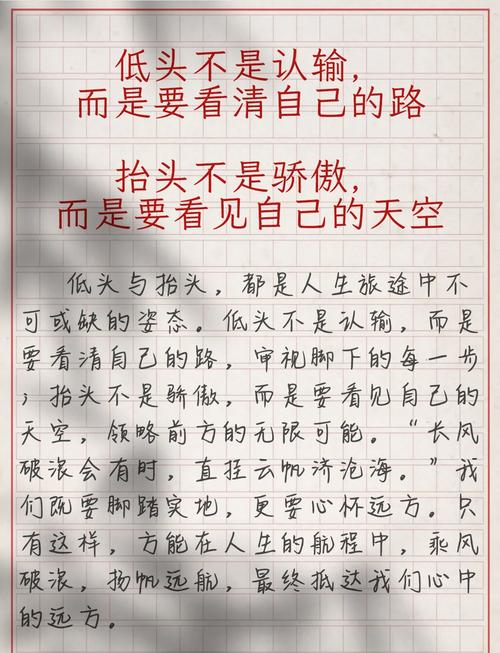 低头不是认输，
而是要看清自己的路
抬头不是骄傲，
而是要看见自己的天空
低头与抬头，都是人生旅途中不
可或缺的姿态。低头不是认输，而是
要看清自己的路，审视脚下的每一步
；抬头不是骄傲，而是要看见自己的
天空，领略前方的无限可能。“长风
破浪会有时，直挂云帆济沧海。”我
们既要脚踏实地，更要心怀远方。只
有这样，方能在人生的航程中，乘风
破浪，扬帆远航，最终抵达我们心中
的远方。